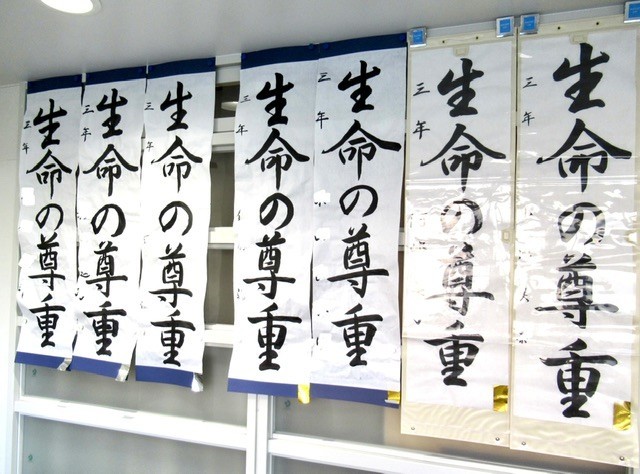 生命の尊重
三年
生命の尊重
三年
生命の尊重
三年
生命の尊重
三年
生命の尊重
三年
生命の尊重
三年
生命の尊重
三年